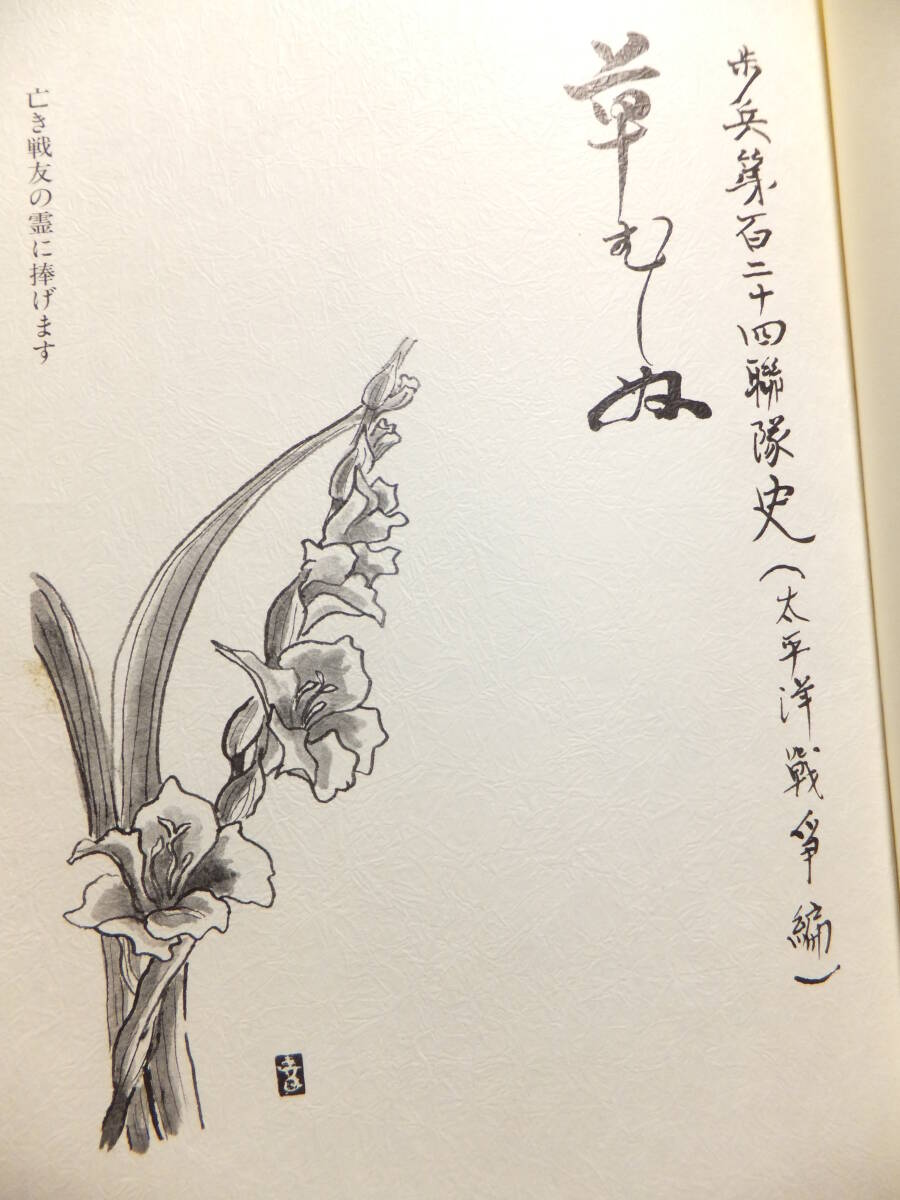 歩兵第百二十四聯隊史(太平洋戰爭編)
草むしぬ
亡き戦友の霊に捧げます